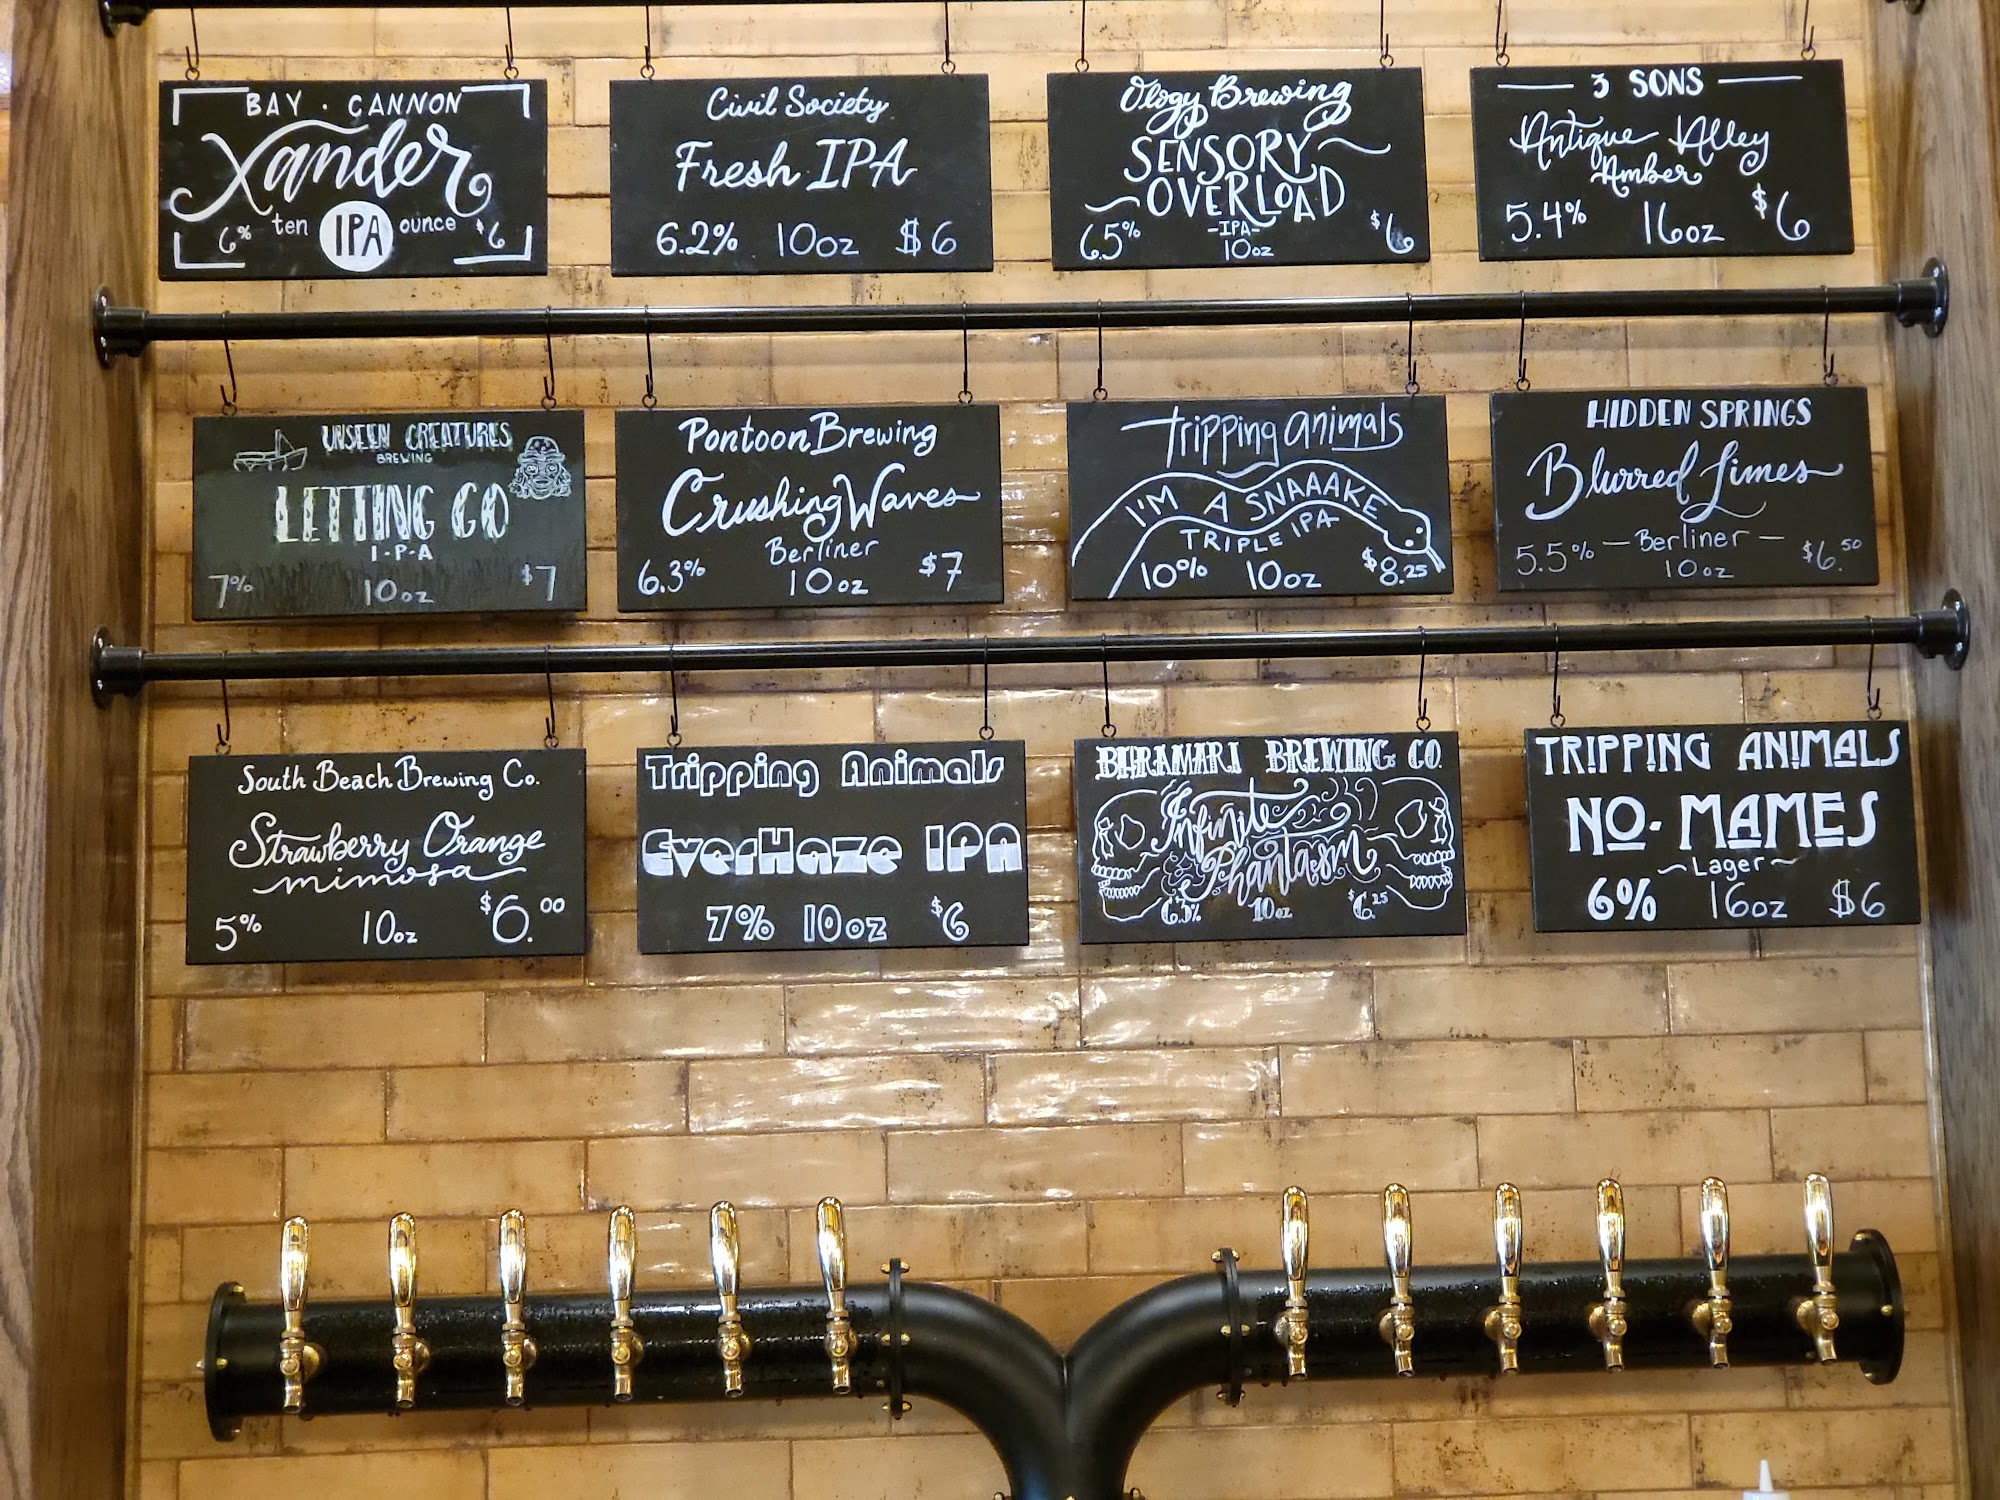 BAY · CANNON
Xander
6% ten IPA ounce $6
Civil Society
Fresh IPA
6.2% 10oz $6
Ology Brewing
SENSORY
OVERLOAD
-IPA-
6.5% 10oz $6
3 SONS
Antique Alley
Amber
5.4% 16oz $6
UNSEEN CREATURES
BREWING
LETTING GO
I-P-A
7% 10oz $7
Pontoon Brewing
Crushing Waves
Berliner
6.3% 10oz $7
Tripping Animals
I'M A SNAAAKE
TRIPLE IPA
10% 10oz $8.25
HIDDEN SPRINGS
Blurred Limes
5.5% — Berliner — $6.50
10oz
South Beach Brewing Co.
Strawberry Orange
mimosa
5% 10oz $6.00
Tripping Animals
EverHaze IPA
7% 10oz $6
BARAMARI BREWING CO.
Infinite
Phantasm
6.5% 10oz $6.25
TRIPPING ANIMALS
NO. MAMES
~Lager~
6% 16oz $6